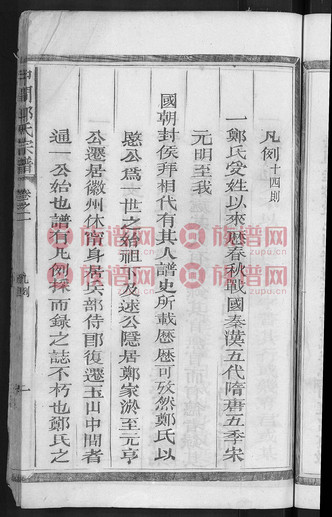 凡例十四則
一鄭氏受姓以來歷春秋戰國秦漢五代隋唐五季宋
元明至我
國朝封侯拜相代有其人譜史所載歷歷可攷然鄭氏以
愍公為一世之始祖下及速公隱居鄭家淤至元亨
公遷居徽州休甯身居兵部侍郎復遷玉山中間者
通一公始也譜行凡例採而錄之誌不朽也鄭氏之
中間鄭氏宗譜
卷之一
凡例
一
族谱网
www.zupu.cn